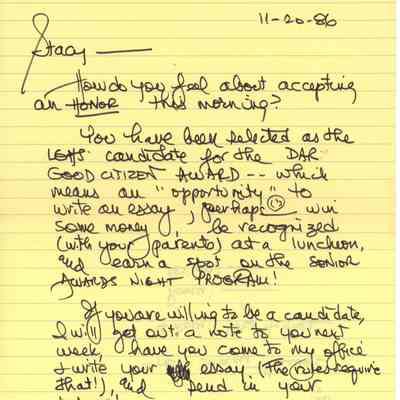 11-20-86
Stacy —
How do you feel about accepting
an HONOR this morning?
You have been selected as the
LGHS candidate for the DAR
GOOD CITIZEN AWARD -- which
means an "opportunity" to
write an essay, perhaps win
some money, be recognized
(with your parents) at a luncheon,
and earn a spot on the SENIOR
AWARDS NIGHT PROGRAM!
If you are willing to be a candidate,
I will get out a note to you next
week, have you come to my office
& write your essay (the rules require
that!), and send in your